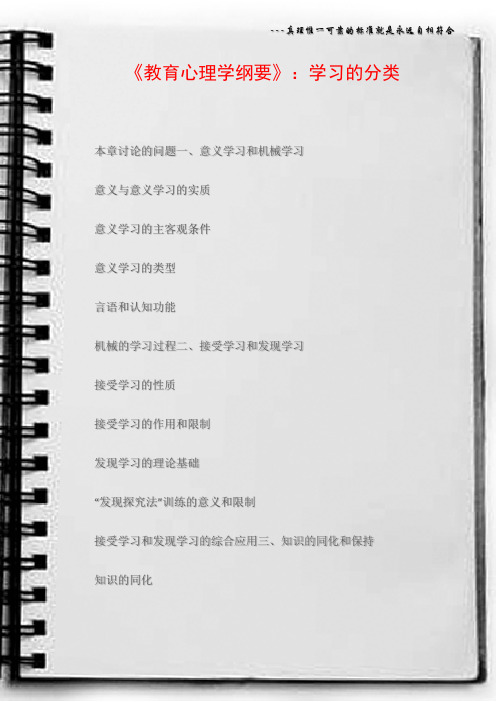 ---真理惟一可靠的标准就是永远自相符合
《教育心理学纲要》：学习的分类
本章讨论的问题一、意义学习和机械学习
意义与意义学习的实质
意义学习的主客观条件
意义学习的类型
言语和认知功能
机械的学习过程二、接受学习和发现学习
接受学习的性质
接受学习的作用和限制
发现学习的理论基础
“发现探究法”训练的意义和限制
接受学习和发现学习的综合应用三、知识的同化和保持
知识的同化